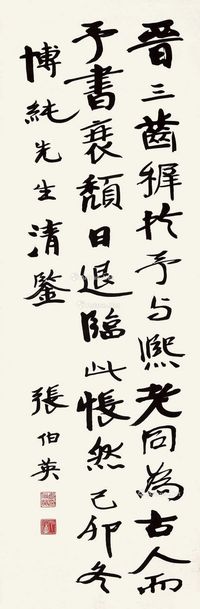 晉三齒穉於予与熙老同為古人而
予書衰頹日退臨此悵然己卯冬
博純先生清鑒
張伯英